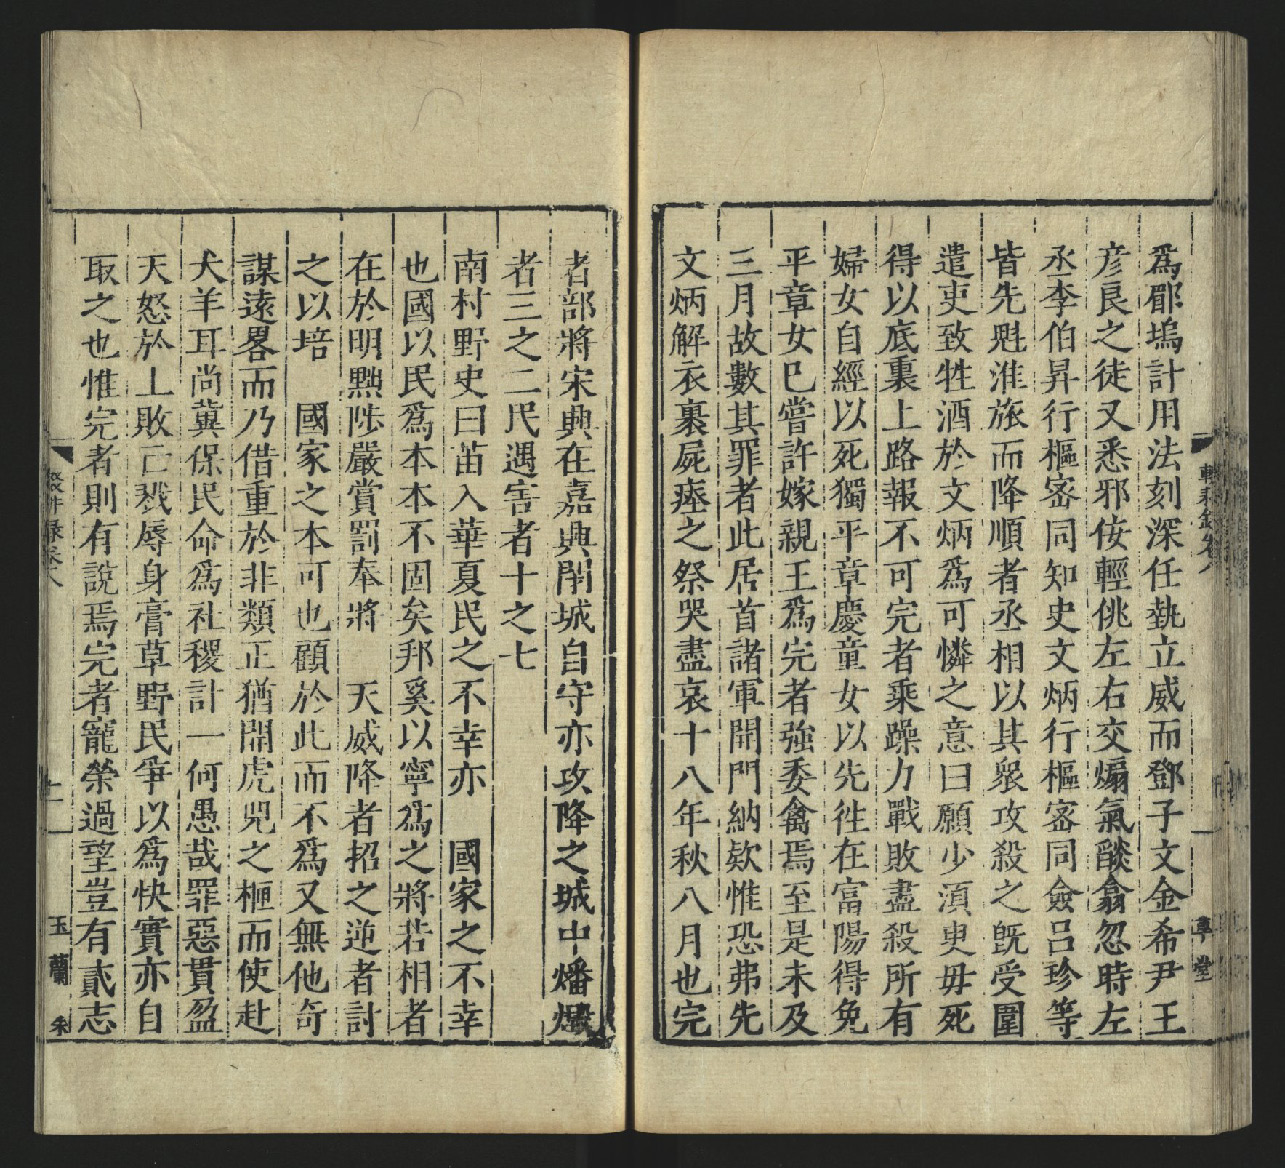 爲郿塢計用法刻深任埶立威而鄧子文金希尹王
彦良之徒又悉邪佞輕佻左右交煽氣燄翕忽時左
丞李伯昇行樞密同知史文炳行樞密同僉呂珍等
皆先魁淮旅而降順者丞相以其衆攻殺之旣受圍
遣吏致牲酒於文炳爲可憐之意曰願少須臾毋死
得以底裏上路報不可完者乘躁力戰敗盡殺所有
婦女自經以死獨平章慶童女以先徃在富陽得免
平章女巳嘗許嫁親王爲完者強委禽焉至是未及
三月故數其罪者此居首諸軍開門納欵惟恐弗先
文炳解衣裹屍瘞之祭哭盡哀十八年秋八月也完
者部將宋興在嘉興閉城自守亦攻降之城中燔燬
者三之二民遇害者十之七
南村野史曰苗入華夏民之不幸亦 國家之不幸
也國以民爲本本不固矣邦奚以寧爲之將若相者
在於明黜陟嚴賞罰奉將 天威降者招之逆者討
之以培 國家之本可也顧於此而不爲又無他奇
謀遠畧而乃借重於非類正猶開虎兕之柙而使赴
犬羊耳尚冀保民命爲社稷計一何愚哉罪惡貫盈
天怒於上敗亡戮辱身膏草野民爭以爲快實亦自
取之也惟完者則有說焉完者寵榮過望豈有貳志
玉蘭
草堂